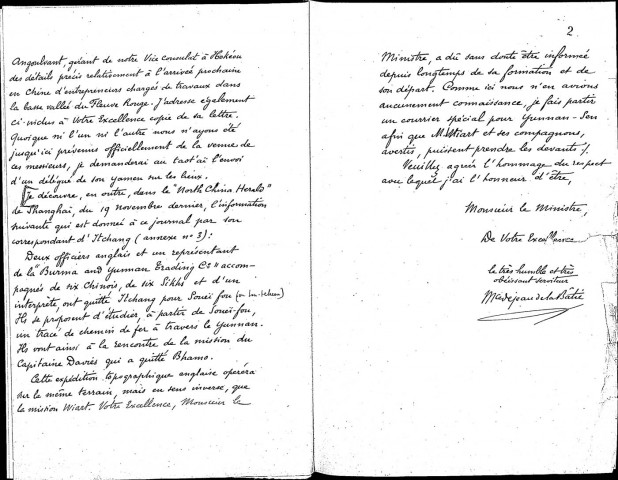 Angoulvant, gérant de notre Vice consulat à Hokéou
des détails précis relativement à l'arrivée prochaine
en Chine d'entrepreneurs chargés de travaux dans
la basse vallée du Fleuve Rouge. J'adresse également
ci-inclus à Votre Excellence copie de sa lettre.
Quoique ni l'un ni l'autre nous n'ayons été
jusqu'ici prévenus officiellement de la venue de
ces messieurs, je demanderai au taot'aï l'envoi
d'un délégué de son yamen sur les lieux.
Je découvre, en outre, dans le "North China Herald"
de Shanghaï, du 19 novembre dernier, l'information
suivante qui est donnée à ce journal par son
correspondant d'Itchang (annexe n° 3):
Deux officiers anglais et un représentant
de la "Burma and Yunnan Trading Co" accom-
pagnés de six Chinois, de six Sikhs et d'un
interprète, ont quitté Itchang pour Soueï fou
Ils se proposent d'étudier, à partir de Soueï-fou,
un tracé de chemin de fer à travers le Yunnan.
Ils vont ainsi à la rencontre de la mission du
Capitaine Davies qui a quitté Bhamo.
Cette expédition topographique anglaise opérera
sur le même terrain, mais en sens inverse, que
la mission Wiart. Votre Excellence, Monsieur le
2
Ministre, a dû sans doute être informée
depuis longtemps de sa formation et de
son départ. Comme ici nous n'en avions
aucunement connaissance, je fais partir
un courrier spécial pour Yunnan-Sen
afin que M. Wiart et ses compagnons,
avertis, puissent prendre les devants.
Veuillez agréer l'hommage du respect
avec lequel j'ai l'honneur d'être,
Monsieur le Ministre,
De Votre Excellence
le très humble et très
obéissant serviteur